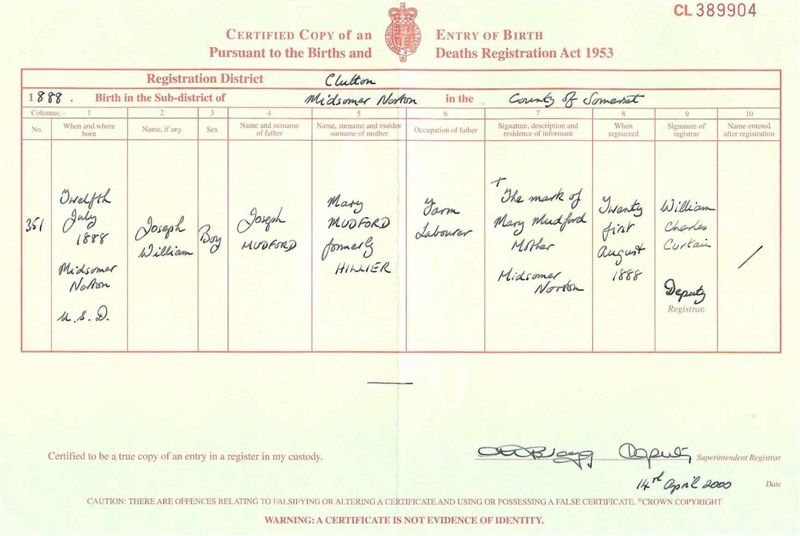 CL 389904
CERTIFIED COPY OF AN ENTRY OF BIRTH
PURSUANT TO THE BIRTHS AND DEATHS REGISTRATION ACT 1953
Registration District Clutton
1888. Birth in the Sub-district of Midsomer Norton in the County of Somerset
Columns:- 1 2 3 4 5 6 7 8 9 10
No.
When and where
born
Name, if any
Sex
Name and surname
of father
Name, surname and maiden
surname of mother
Occupation of father
Signature, description and
residence of informant
When
registered
Signature of
registrar
Name entered
after registration
351
Twelfth
July
1888
Midsomer
Norton
U.S.D.
Joseph
William
Boy
Joseph
MUDFORD
Mary
MUDFORD
formerly
HILLIER
Farm
Labourer
+
The mark of
Mary Mudford
Mother
Midsomer
Norton
Twenty
first
August
1888
William
Charles
Curtain
Deputy
Registrar.
Certified to be a true copy of an entry in a register in my custody.
Deputy Superintendent Registrar
14th April 2000 Date
CAUTION: THERE ARE OFFENCES RELATING TO FALSIFYING OR ALTERING A CERTIFICATE AND USING OR POSSESSING A FALSE CERTIFICATE. ©CROWN COPYRIGHT
WARNING: A CERTIFICATE IS NOT EVIDENCE OF IDENTITY.